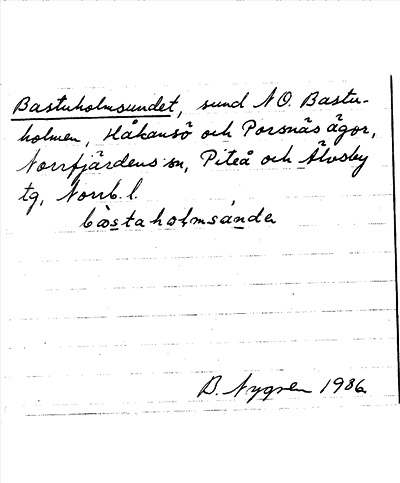 Bastuholmsundet, sund NO. Bastu-
holmen, Håkansö och Porsnäs ägor,
Norrfjärdens sn, Piteå och Älvsby
tg, Norrb. l.
bàstahòlmsándə
B. Nygren 1986